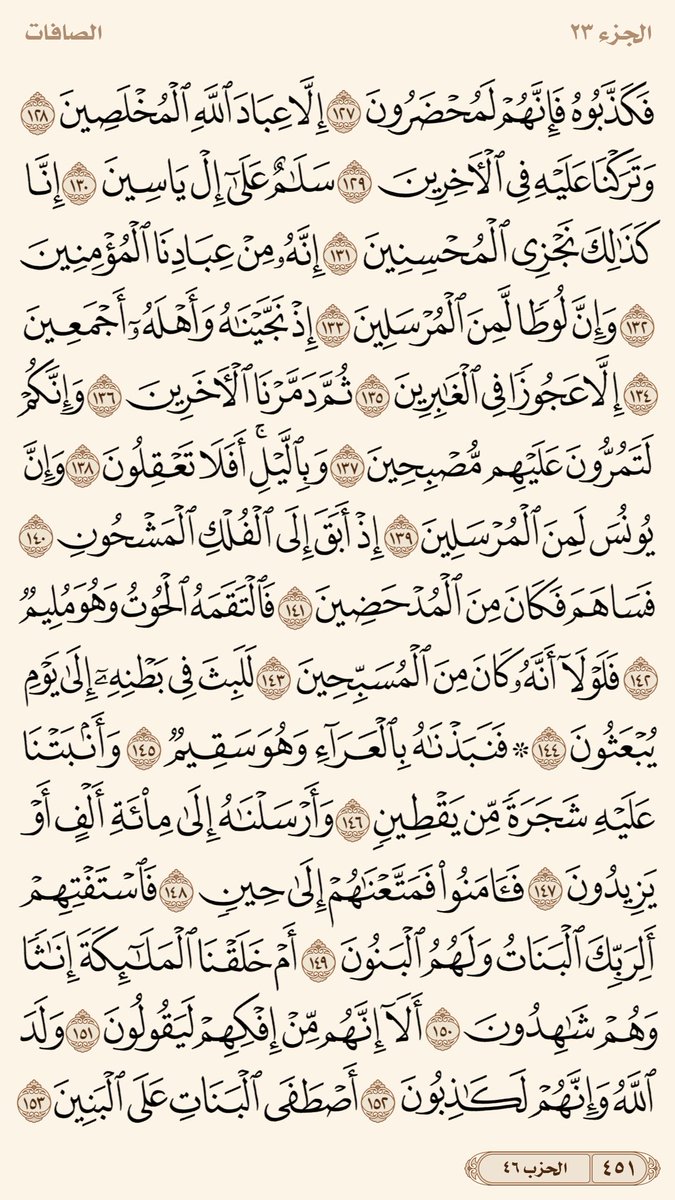 الجزء ٢٣ الصافات
فَكَذَّبُوهُ فَإِنَّهُمْ لَمُحْضَرُونَ ١٢٧ إِلَّا عِبَادَ ٱللَّهِ ٱلْمُخْلَصِينَ ١٢٨
وَتَرَكْنَا عَلَيْهِ فِي ٱلْأَخِرِينَ ١٢٩ سَلَٰمٌ عَلَىٰٓ إِلْ يَاسِينَ ١٣٠ إِنَّا
كَذَٰلِكَ نَجْزِي ٱلْمُحْسِنِينَ ١٣١ إِنَّهُۥ مِنْ عِبَادِنَا ٱلْمُؤْمِنِينَ
١٣٢ وَإِنَّ لُوطًا لَّمِنَ ٱلْمُرْسَلِينَ ١٣٣ إِذْ نَجَّيْنَٰهُ وَأَهْلَهُۥٓ أَجْمَعِينَ
١٣٤ إِلَّا عَجُوزًا فِي ٱلْغَٰبِرِينَ ١٣٥ ثُمَّ دَمَّرْنَا ٱلْأَخَرِينَ ١٣٦ وَإِنَّكُمْ
لَتَمُرُّونَ عَلَيْهِم مُّصْبِحِينَ ١٣٧ وَبِٱلَّيْلِۚ أَفَلَا تَعْقِلُونَ ١٣٨ وَإِنَّ
يُونُسَ لَمِنَ ٱلْمُرْسَلِينَ ١٣٩ إِذْ أَبَقَ إِلَى ٱلْفُلْكِ ٱلْمَشْحُونِ ١٤٠
فَسَاهَمَ فَكَانَ مِنَ ٱلْمُدْحَضِينَ ١٤١ فَٱلْتَقَمَهُ ٱلْحُوتُ وَهُوَ مُلِيمٌ
١٤٢ فَلَوْلَآ أَنَّهُۥ كَانَ مِنَ ٱلْمُسَبِّحِينَ ١٤٣ لَلَبِثَ فِي بَطْنِهِۦٓ إِلَىٰ يَوْمِ
يُبْعَثُونَ ١٤٤ ۞ فَنَبَذْنَٰهُ بِٱلْعَرَآءِ وَهُوَ سَقِيمٌ ١٤٥ وَأَنۢبَتْنَا
عَلَيْهِ شَجَرَةً مِّن يَقْطِينٍ ١٤٦ وَأَرْسَلْنَٰهُ إِلَىٰ مِا۟ئَةِ أَلْفٍ أَوْ
يَزِيدُونَ ١٤٧ فَـَٔامَنُوا۟ فَمَتَّعْنَٰهُمْ إِلَىٰ حِينٍ ١٤٨ فَٱسْتَفْتِهِمْ
أَلِرَبِّكَ ٱلْبَنَاتُ وَلَهُمُ ٱلْبَنُونَ ١٤٩ أَمْ خَلَقْنَا ٱلْمَلَٰٓئِكَةَ إِنَٰثًا
وَهُمْ شَٰهِدُونَ ١٥٠ أَلَآ إِنَّهُم مِّنْ إِفْكِهِمْ لَيَقُولُونَ ١٥١ وَلَدَ
ٱللَّهُ وَإِنَّهُمْ لَكَٰذِبُونَ ١٥٢ أَصْطَفَى ٱلْبَنَاتِ عَلَى ٱلْبَنِينَ ١٥٣
٤٥١ الحزب ٤٦